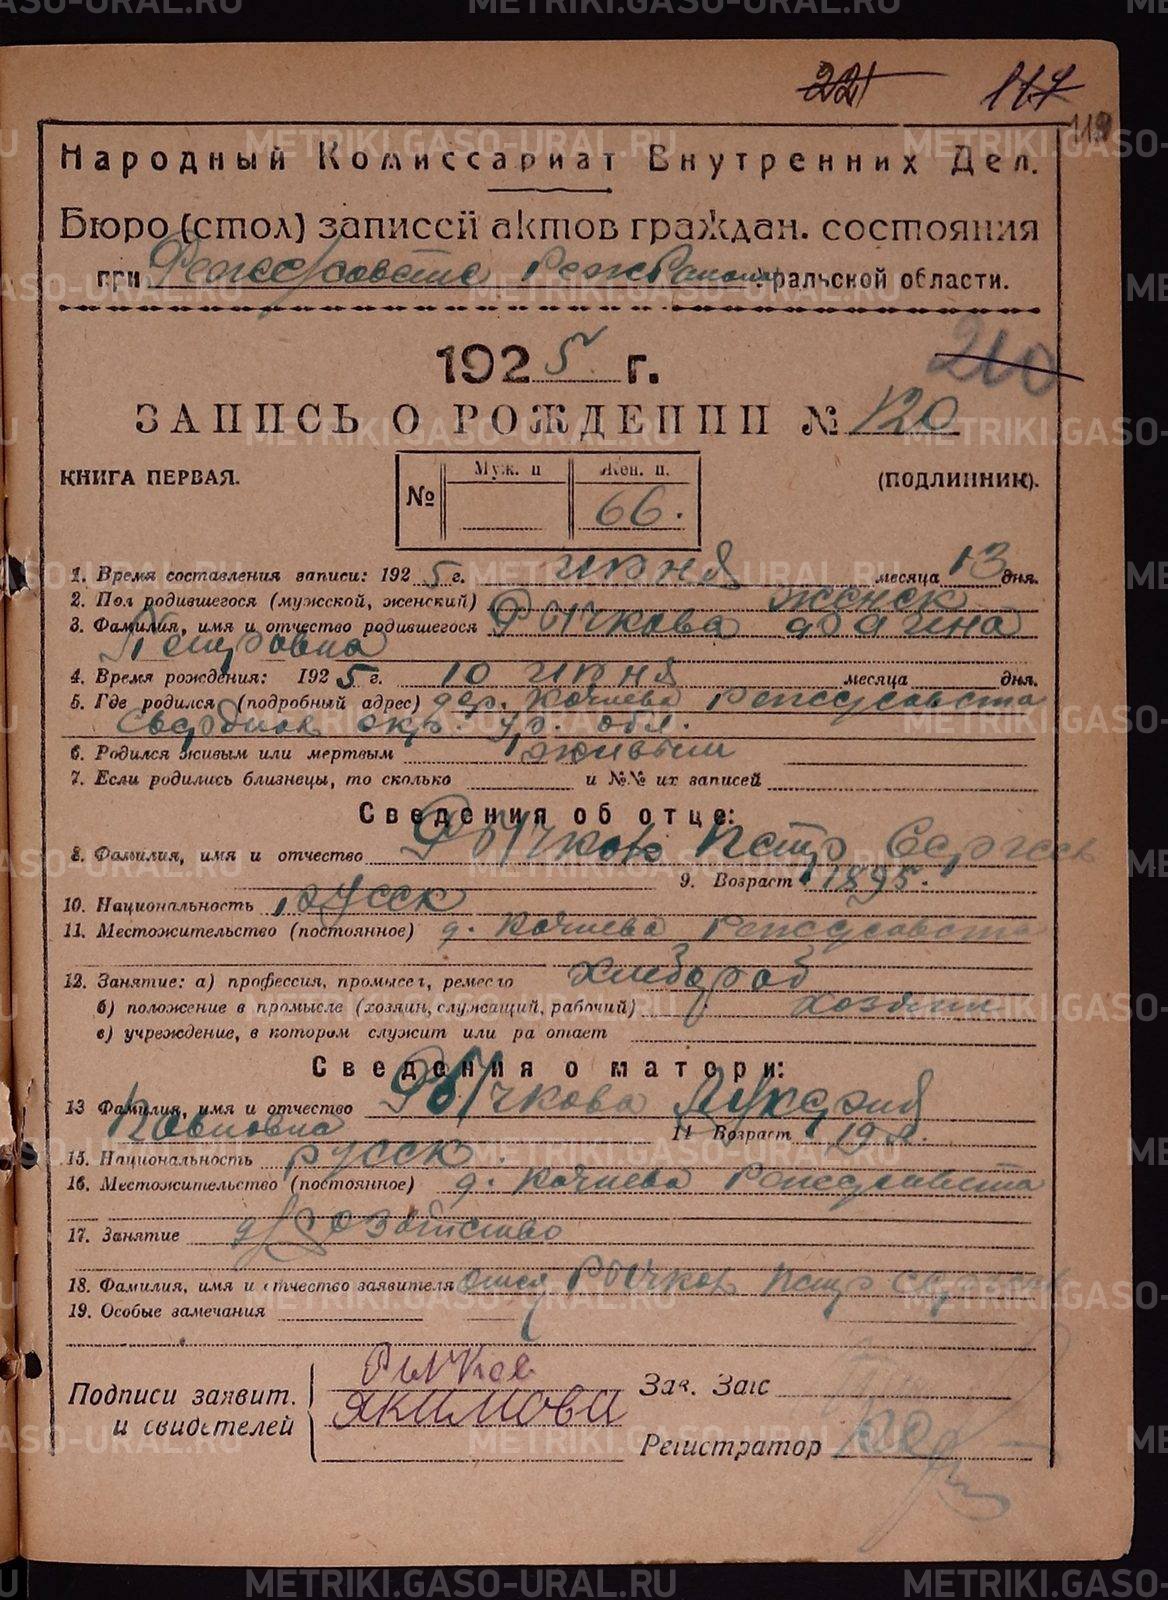 221 117
119
Народный Комиссариат Внутренних Дел.
Бюро (стол) записей актов граждан. состояния
при Режсельсовете Реж района Уральской области.
1925 г.
210
ЗАПИСЬ О РОЖДЕНИИ № 120
КНИГА ПЕРВАЯ.
(ПОДЛИННИК).
№ Муж. п Жен. п.
66.
1. Время составления записи: 1925 г. июня 13 месяца дня.
2. Пол родившегося (мужской, женский) женск
3. Фамилия, имя и отчество родившегося Рычкова
Петровна
4. Время рождения: 1925 г. 10 июня месяца дня.
5. Где родился (подробный адрес) дер. Кочнева Режсельсовета
Свердлов окр. Ур. обл.
6. Родился живым или мертвым живым
7. Если родились близнецы, то сколько и №№ их записей
Сведения об отце:
8. Фамилия, имя и отчество Рычков Петр Сергеев
9. Возраст 1895.
10. Национальность русск
11. Местожительство (постоянное) д. Кочнева Режсельсовета
12. Занятие: а) профессия, промысел, ремесло хлебороб
б) положение в промысле (хозяин, служащий, рабочий) хозяин
в) учреждение, в котором служит или работает
Сведения о матери:
13 Фамилия, имя и отчество Рычкова Лукерия
Павловна
14 Возраст 19 л.
15. Национальность русск.
16. Местожительство (постоянное) д. Кочнева Режсельсовета
17. Занятие д/хозяйство
18. Фамилия, имя и отчество заявителя отец Рычков Петр Сергеев
19. Особые замечания
Подписи заявит. и свидетелей
Рычков
Якимови
Зав. Загс
Регистратор
METRIKI.GASO-URAL.RU